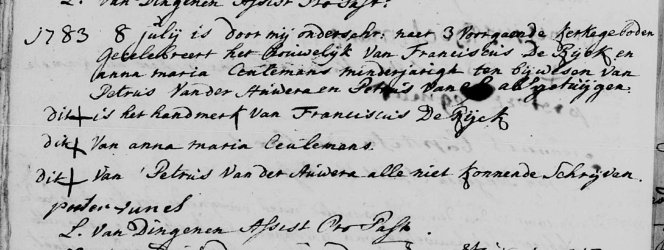 L. Van Dingenen Assist Pro Past.
1783 8 july is door mij onderschr: naer 3 voorgaende kerkegeboden
Gecelebreert het houwelijk Van Franciscus De Rijck en
anna maria Ceulemans minderjarigh ten bijwesen van
Petrus Van der Auwera en Petrus Van als getuijgen.
dit + is het handmerk Van Franciscus De Rijck
dit + Van anna maria Ceulemans.
dit + Van Petrus Van der Auwera alle niet konnende Schrijven.
peeter
L. Van Dingenen Assist Pro Past.